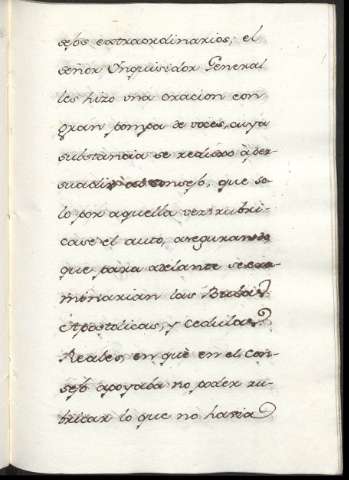 sejos extraordinarios; el
señor Ynquisidor General
les hizo una oracion con
gran pompa de voces, cuya
substancia se reduxo à per
suadir al Consejo, que so
lo por aquella vez rubri
case el auto, aseguran
que para adelante se exa-
minarian las Bulas
Apostolicas, y Cedulas
Reales, en que en el Con-
sejo apoyaba no poder ru-
bricar lo que no havia